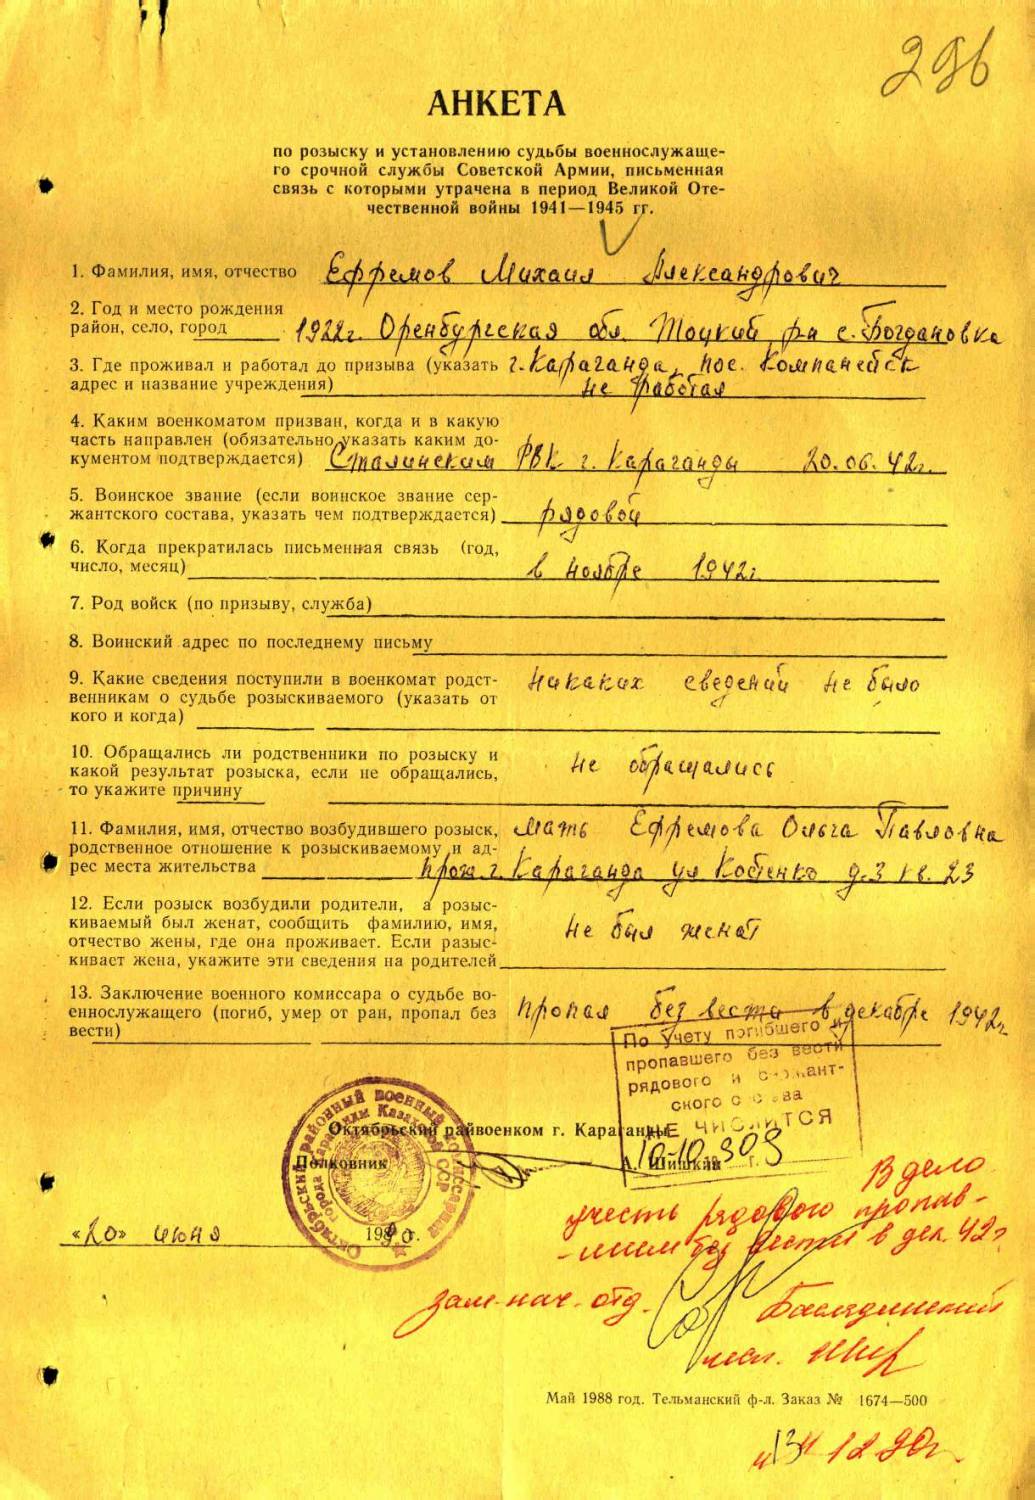 296
АНКЕТА
по розыску и установлению судьбы военнослужаще-
го срочной службы Советской Армии, письменная
связь с которыми утрачена в период Великой Оте-
чественной войны 1941—1945 гг.
1. Фамилия, имя, отчество Ефремов Михаил Александрович
2. Год и место рождения
район, село, город 1922г. Оренбургская обл. Тоцкий р-н с. Богдановка
3. Где проживал и работал до призыва (указать г. Караганда, пос. Компанейск
адрес и название учреждения) не работал
4. Каким военкоматом призван, когда и в какую
часть направлен (обязательно указать каким до-
кументом подтверждается) Сталинским РВК г. Караганды 20.06.42г.
5. Воинское звание (если воинское звание сер-
жантского состава, указать чем подтверждается) рядовой
6. Когда прекратилась письменная связь (год,
число, месяц) в ноябре 1942г.
7. Род войск (по призыву, служба)
8. Воинский адрес по последнему письму
9. Какие сведения поступили в военкомат родст-
венникам о судьбе розыскиваемого (указать от
кого и когда)
никаких сведений не было
10. Обращались ли родственники по розыску и
какой результат розыска, если не обращались,
то укажите причину
не обращались
11. Фамилия, имя, отчество возбудившего розыск, мать Ефремова Ольга Павловна
родственное отношение к розыскиваемому и ад-
рес места жительства прож. г. Караганда ул Костенко д.3 кв. 23
12. Если розыск возбудили родители, а розыс-
киваемый был женат, сообщить фамилию, имя,
отчество жены, где она проживает. Если разыс-
кивает жена, укажите эти сведения на родителей
не был женат
13. Заключение военного комиссара о судьбе во-
еннослужащего (погиб, умер от ран, пропал без
вести)
пропал без веста в декабре 1942г.
По учету погибшего и
пропавшего без вести
рядового и сержант-
ского состава
НЕ ЧИСЛИТСЯ
Октябрьский райвоенком г. Караганды
Полковник А. Шишкин
Октябрьский районный военный комиссариат
города Караганды Казахской ССР
«20» июня 1990 г.
В дело
учесть рядового пропав-
-шим без вести в дек. 42г
зам. нач. отд.
исп.
Май 1988 год. Тельманский ф-л. Заказ № 1674—500
"13" 12 90г.